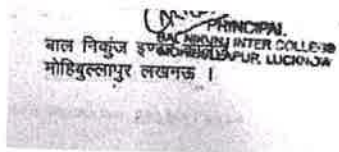 PRINCIPAL.
BAL NIKUNJ INTER COLLEGE
MOHIBULLAPUR, LUCKNOW
बाल निकुंज
मोहिबुल्लापुर लखनऊ ।